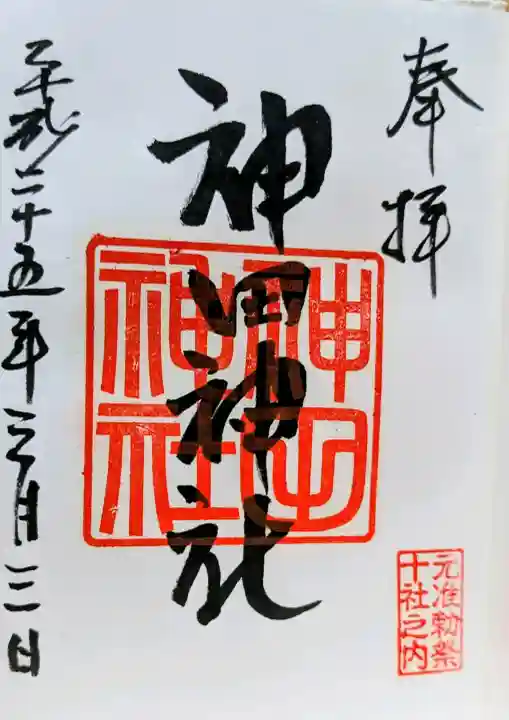 奉拝
元准勅祭
十社之内
神田神社
神田
神社
平成二十五年三月三日